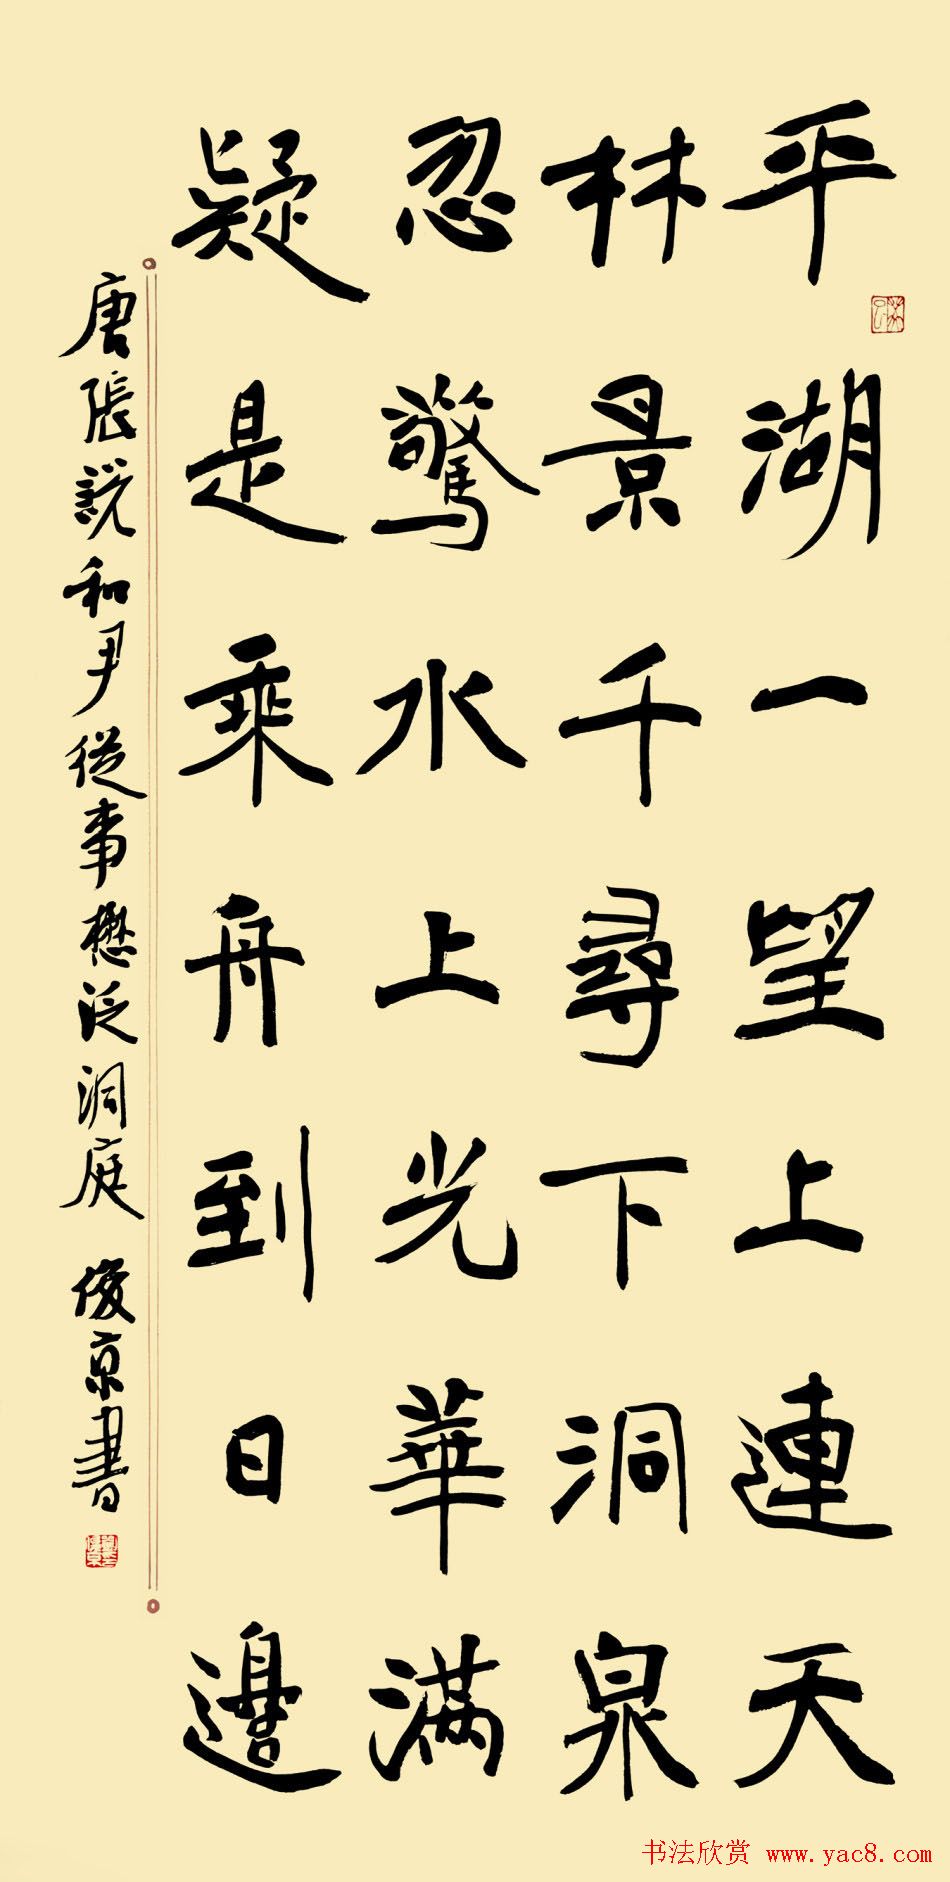 平湖一望上連天
林景千尋下洞泉
忍驚水上光華滿
疑是乘舟到日邊
唐張説和尹從事懋泛洞庭 俊京書
书法欣赏 www.yac8.com